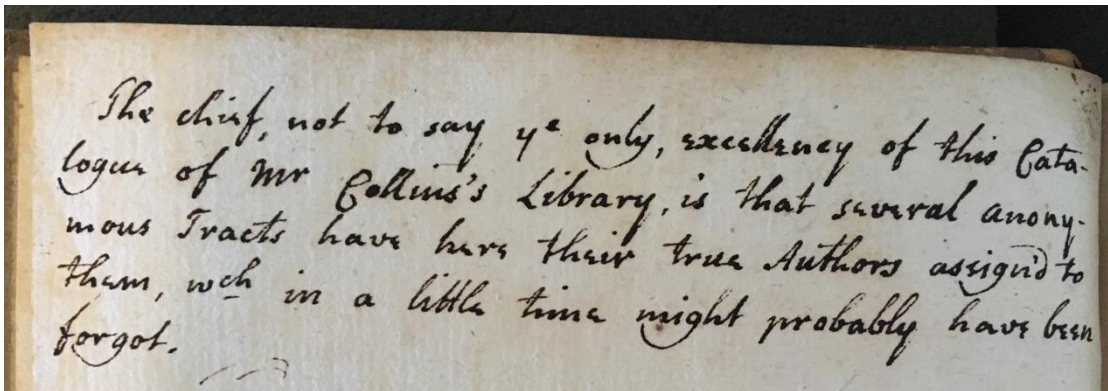 The chief, not to say yᵉ only, excellency of this Cata-
logue of Mr Collins's Library, is that several anony-
mous Tracts have here their true Authors assign'd to
them, wch in a little time might probably have been
forgot.